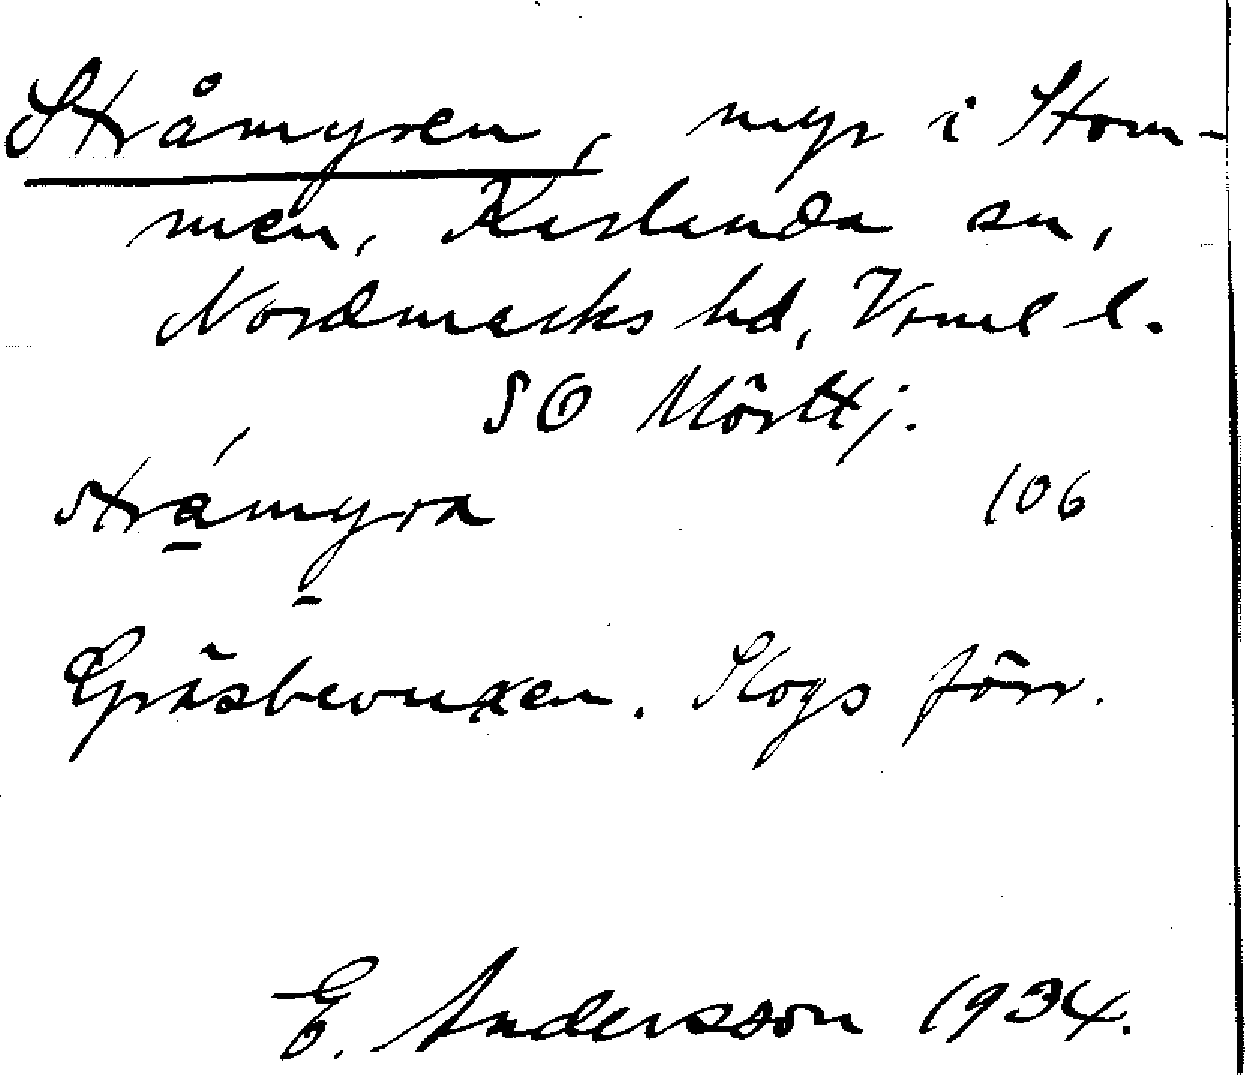 Stråmyren, myr i Stom-
men, Karlanda sn,
Nordmarks hd, Vrml l.
SO Mörttj.
stråmyra 106
Gräsbevuxen. Slogs förr.
E. Andersson 1934.